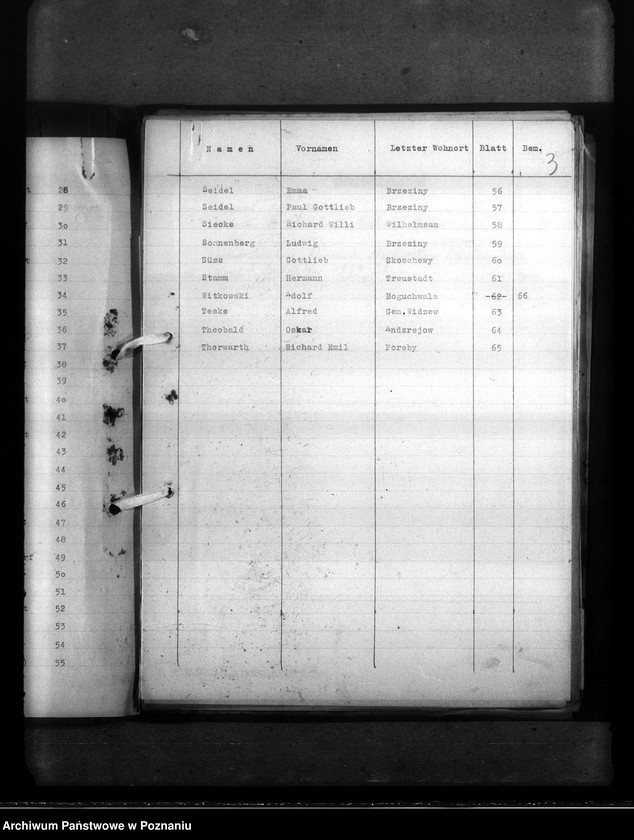 Namen Vornamen Letzter Wohnort Blatt Bem.
3
Seidel Emma Brzeziny 56
Seidel Paul Gottlieb Brzeziny 57
Siecke Richard Willi Wilhelmsau 58
Sonnenberg Ludwig Brzeziny 59
Süss Gottlieb Skoschewy 6o
Stamm Hermann Treustadt 61
Witkowski Adolf Boguchwala 62 66
Teske Alfred Gem.Widzew 63
Theobald Oskar Andzrejow 64
Thorwarth Richard Emil Poreby 65
28
29
3o
31
32
33
34
35
36
37
38
39
4o
41
42
43
44
45
46
47
48
49
5o
51
52
53
54
55
Archiwum Państwowe w Poznaniu